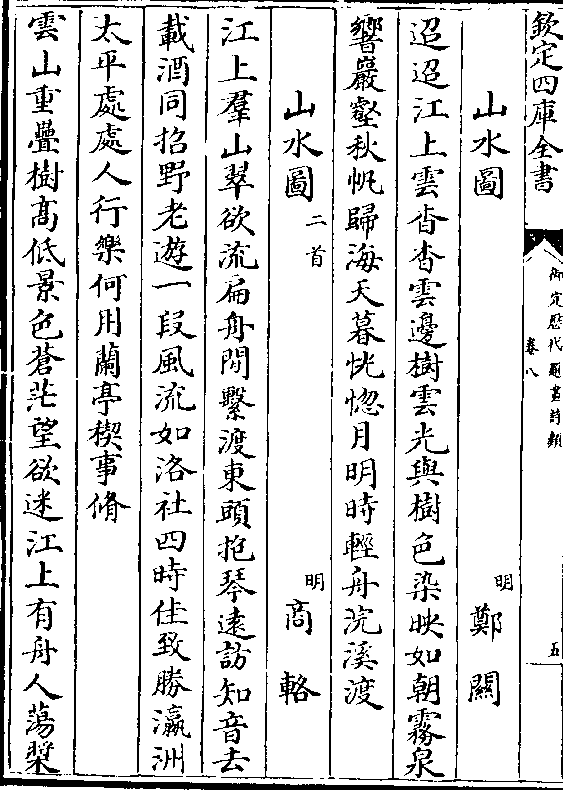 欽定四庫全書
御定歷代題畫詩類
卷八
五
山水圖　明　鄭闗
迢迢江上雲杳杳雲邊樹雲光與樹色染映如朝霧泉
響巖壑秋帆歸海天暮恍惚月明時輕舟浣溪渡
山水圖　二首　明　商輅
江上羣山翠欲流扁舟閒繫渡東頭抱琴遠訪知音去
載酒同招野老遊一段風流如洛社四時佳致勝瀛洲
太平處處人行樂何用蘭亭稧事脩
雲山重疊樹髙低景色蒼茫望欲迷江上有舟人蕩槳